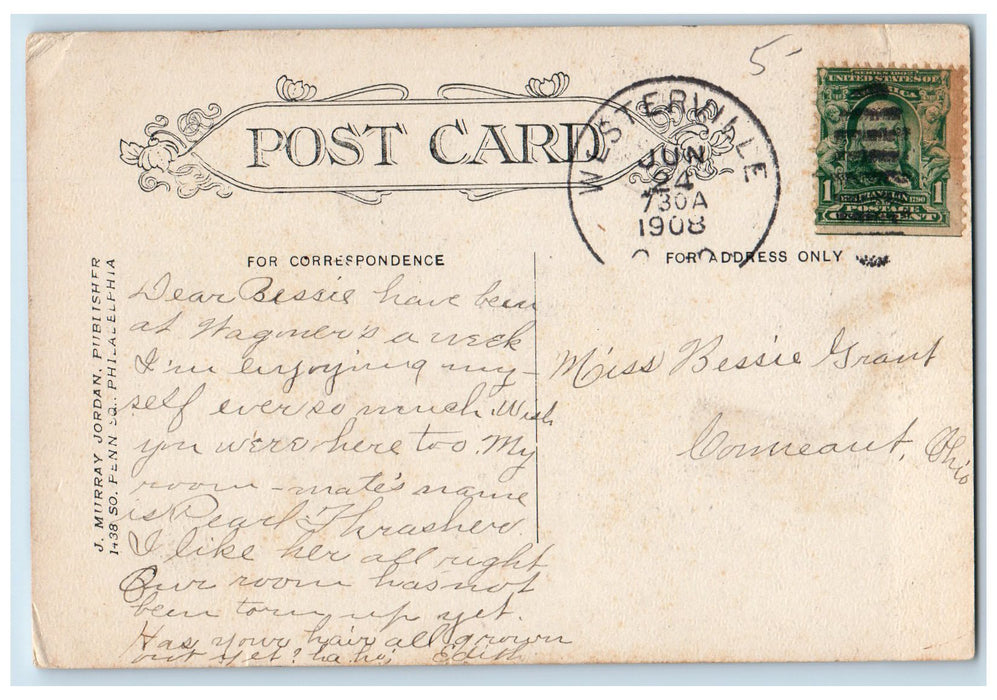 5-
POST CARD
WESTERVILLE
JUN
24
730A
1908
SERIES 1902
UNITED STATES OF
AMERICA
1 1
FRANKLIN 1790
POSTAGE
FOR CORRESPONDENCE
FOR ADDRESS ONLY
J. MURRAY JORDAN, PUBLISHER
1438 SO. PENN SQ., PHILADELPHIA
Dear Bessie have been
at Wagoner's a week
I'm enjoying my-
self ever so much. Wish
you were here too. My
room-mate's name
is Pearl Thrasher.
I like her all right
Our room has not
been torn up yet.
Has your hair all grown
out yet? ha ha Edith
Miss Bessie Grant
Conneaut, Ohio